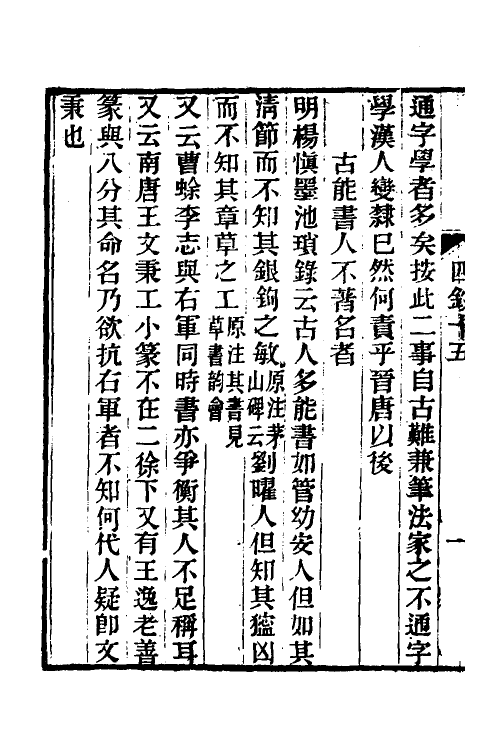 通字學者多矣按此二事自古難兼筆法家之不通字
學漢人變隸已然何責乎晉唐以後
古能書人不著名者
明楊慎墨池瑣錄云古人多能書如管幼安人但如其
清節而不知其銀鉤之敏原注茅山碑云劉曜人但知其獪凶
而不知其章草之工原注其書見草書韵會
又云曹蜍李志與右軍同時書亦爭衡其人不足稱耳
又云南唐王文秉工小篆不在二徐下又有王逸老善
篆與八分其命名乃欲抗右軍者不知何代人疑卽文
秉也
四錄十五
一